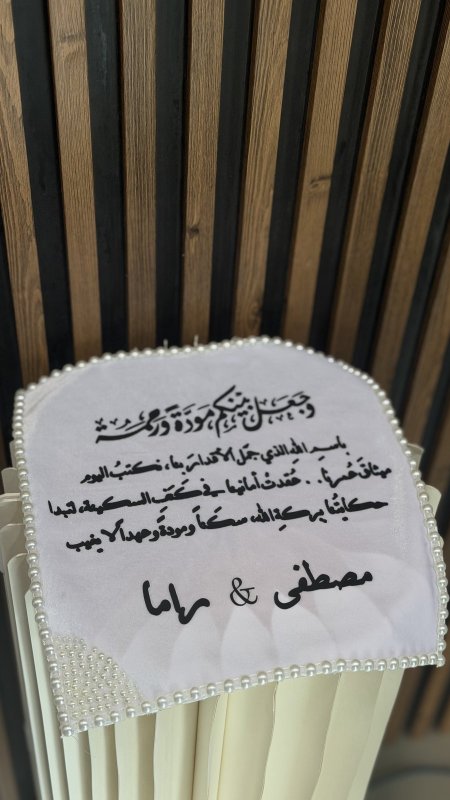 وَجَعَلَ بَيْنَكُم مَوَدَّةً وَرَحْمَةً
باسمِ اللهِ الذي جمّل الأقدارَ بنا، نكتبُ اليوم
ميثاقَ عُمرِنا.. عُقدت أمانينا في كَنَفِ السكينة، لتبدأ
حكايتُنا ببركةِ الله، سكناً ومودةً وعهداً لا يغيب
مصطفى & رهاما